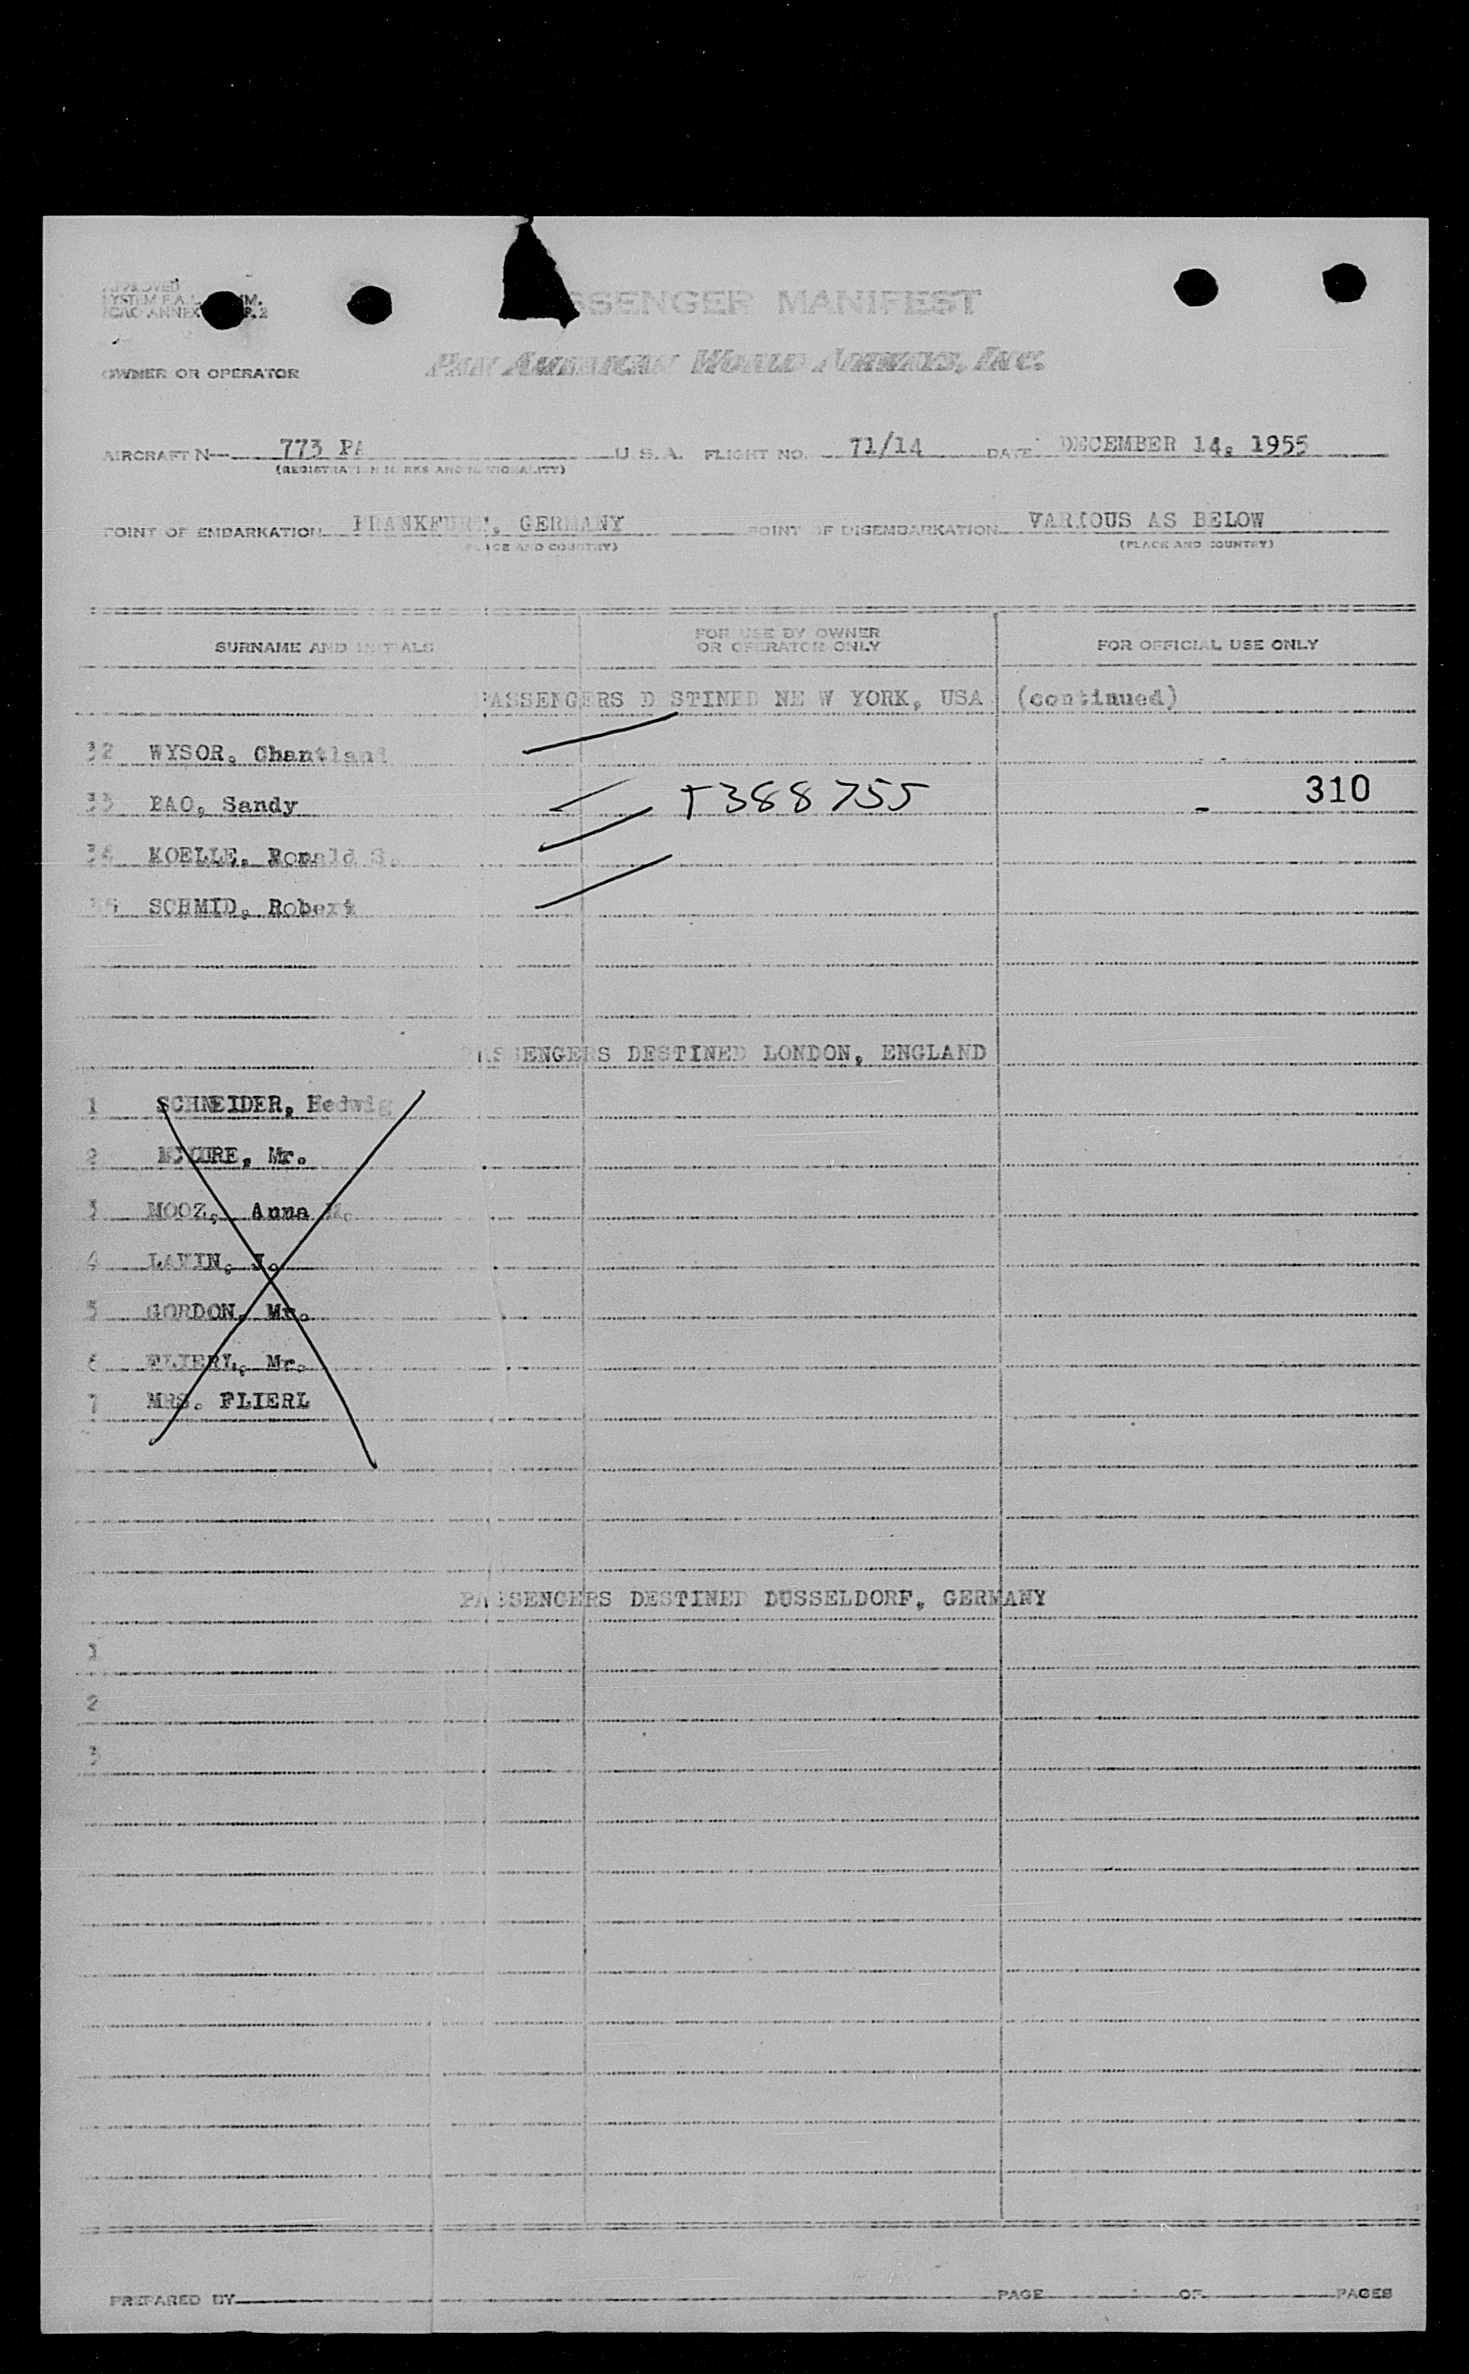 APPROVED
SYSTEM F.A.L. COMM.
ICAO ANNEX 2
PASSENGER MANIFEST
OWNER OR OPERATOR PAN AMERICAN WORLD AIRWAYS, INC.
AIRCRAFT N— 773 PA U. S. A. FLIGHT NO. 71/14 DATE DECEMBER 14, 1955
(REGISTRATION MARKS AND NATIONALITY)
POINT OF EMBARKATION FRANKFURT, GERMANY POINT OF DISEMBARKATION VARIOUS AS BELOW
(PLACE AND COUNTRY) (PLACE AND COUNTRY)
SURNAME AND INITIALS FOR USE BY OWNER OR OPERATOR ONLY FOR OFFICIAL USE ONLY
PASSENGERS DESTINED NE W YORK, USA (continued)
32 WYSOR, Chantland
33 BAO, Sandy T388755 310
34 KOELLE, Ronald S.
35 SCHMID, Robert
PASSENGERS DESTINED LONDON, ENGLAND
1 SCHNEIDER, Hedwig
2 Mr.
3 MOOZ, Anna M.
4 LAVIN, J.
5 GORDON, Mr.
6 FLIERL, Mr.
7 MRS. FLIERL
PASSENGERS DESTINED DUSSELDORF, GERMANY
1
2
3
PREPARED BY PAGE OF PAGES